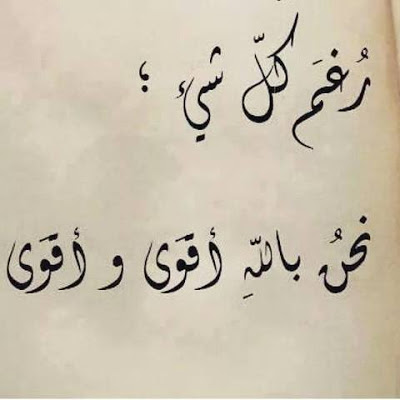 رُغمَ كلّ شئٍ ؛
نحنُ باللّهِ أقوَى و أقوَى